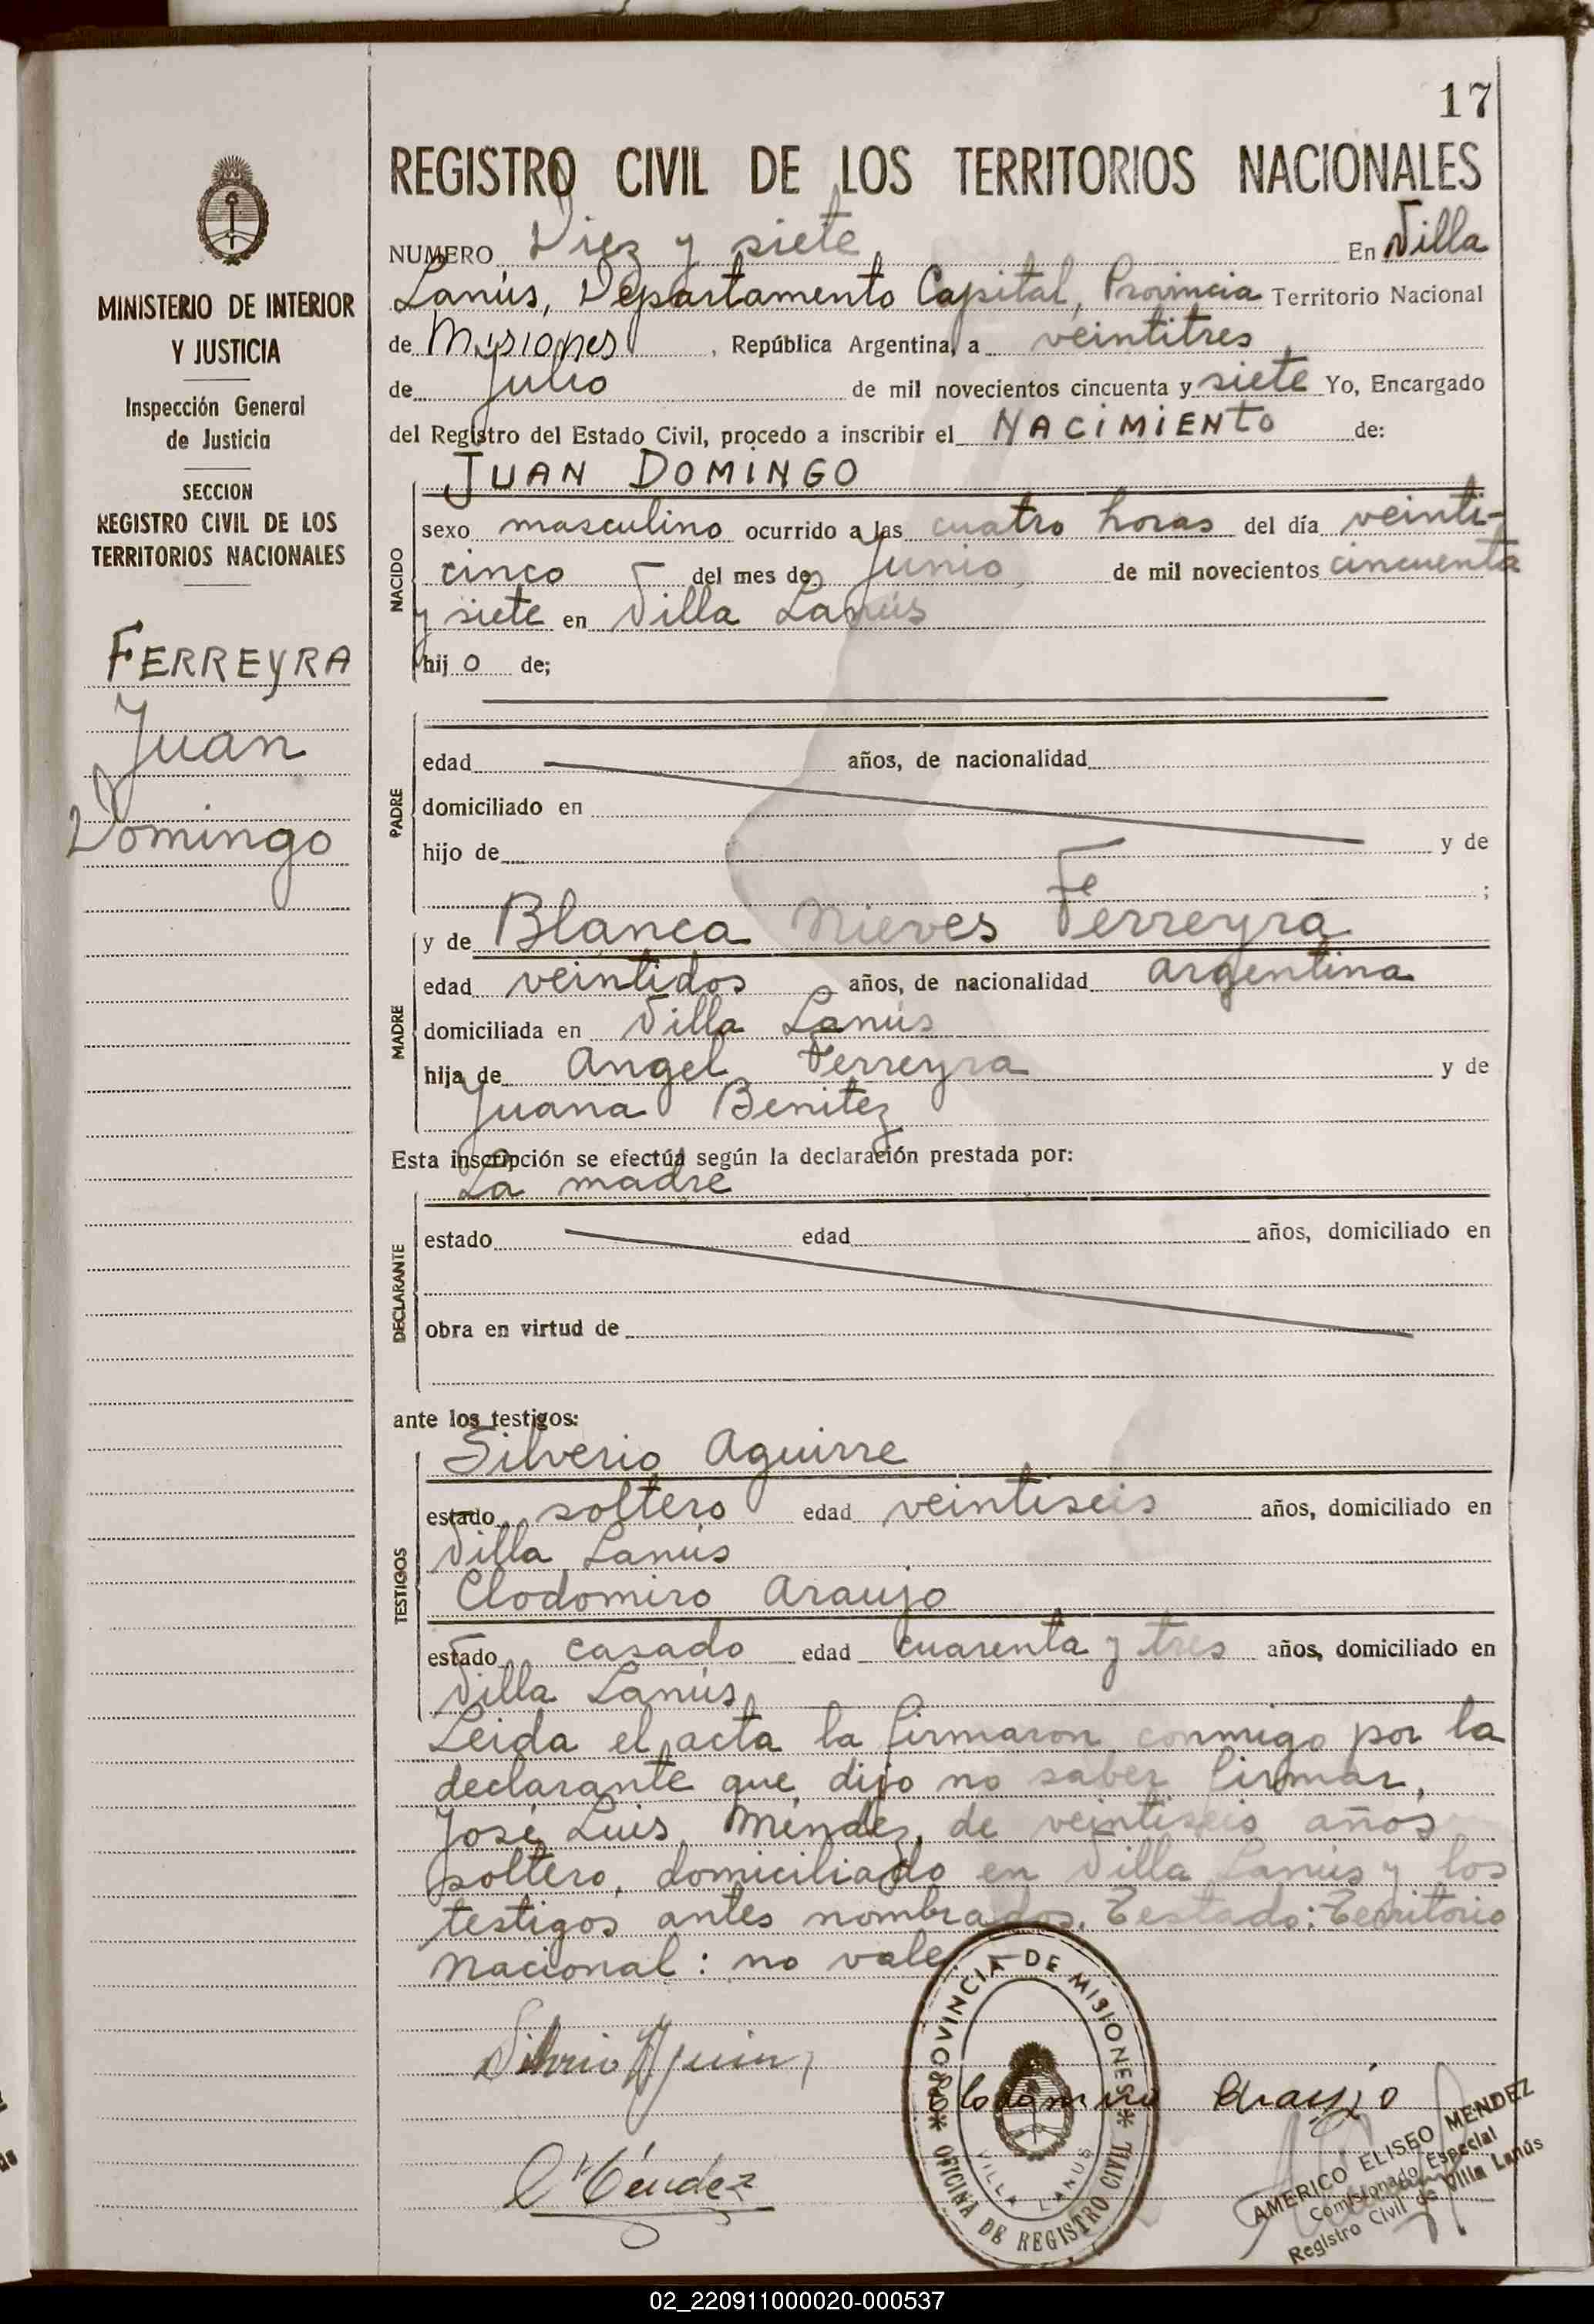 17
REGISTRO CIVIL DE LOS TERRITORIOS NACIONALES
NUMERO Diez y siete En Villa
Lanús, Departamento Capital, Provincia Territorio Nacional
de Misiones, República Argentina, a veintitres
de Julio de mil novecientos cincuenta y siete Yo, Encargado
del Registro del Estado Civil, procedo a inscribir el NACIMIENTO de:
MINISTERIO DE INTERIOR
Y JUSTICIA
Inspección General
de Justicia
SECCION
REGISTRO CIVIL DE LOS
TERRITORIOS NACIONALES
FERREYRA
Juan
Domingo
NACIDO
JUAN DOMINGO
sexo masculino ocurrido a las cuatro horas del día veinti-
cinco del mes de Junio, de mil novecientos cincuenta
y siete en Villa Lanús
hij o de;
PADRE
edad años, de nacionalidad
domiciliado en
hijo de y de
;
MADRE
y de Blanca Nieves Ferreyra
edad veintidos años, de nacionalidad argentina
domiciliada en Villa Lanús
hija de Angel Ferreyra y de
Juana Benitez
Esta inscripción se efectúa según la declaración prestada por:
DECLARANTE
La madre
estado edad años, domiciliado en
obra en virtud de
ante los testigos:
TESTIGOS
Silverio Aguirre
estado soltero edad veintiseis años, domiciliado en
Villa Lanús
Clodomiro Araujo
estado casado edad cuarenta y tres años, domiciliado en
Villa Lanús
Leida el acta la firmaron conmigo por la
declarante que dijo no saber firmar,
José Luis Méndez, de veintiseis años
soltero, domiciliado en Villa Lanús y los
testigos antes nombrados. Testado: Territorio
Nacional: no vale
PROVINCIA DE MISIONES
OFICINA DE REGISTRO CIVIL
VILLA LANUS
Clodomiro Araujo
Méndez
AMERICO ELISEO MENDEZ
Comisionado Especial
Registro Civil de Villa Lanús
02_220911000020-000537